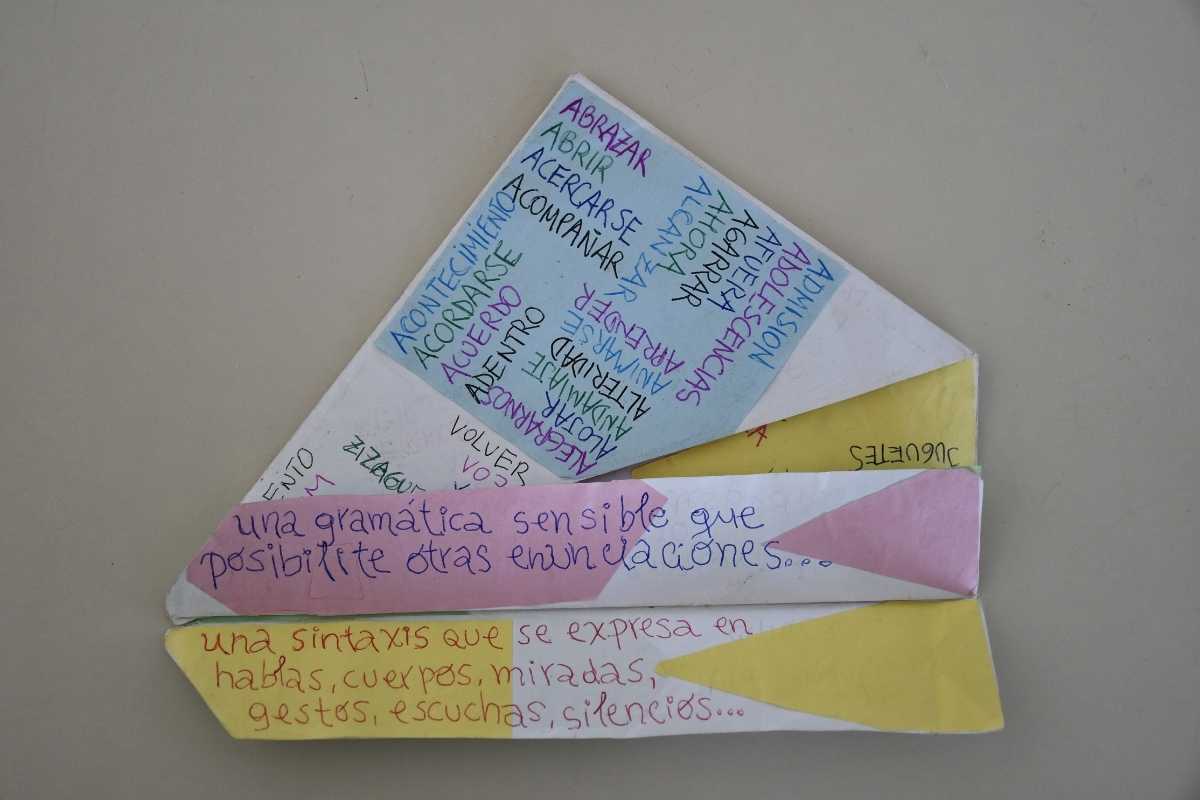 ABRAZAR
ABRIR
ACERCARSE
ACOMPAÑAR
ACONTECIMIENTO
ACORDARSE
ACUERDO
ADENTRO
ADMISION
ADOLESCENCIAS
AFUERA
AGARRAR
AHORA
ALCANZAR
ALEGRARNOS
ALOJAR
ANDAMIAJE
ALTERIDAD
ANIMARSE
APRENDER
VOLVER
JUGUETES
una gramática sensible que
posibilite otras enunciaciones...
una sintaxis que se expresa en
hablas, cuerpos, miradas,
gestos, escuchas, silencios...